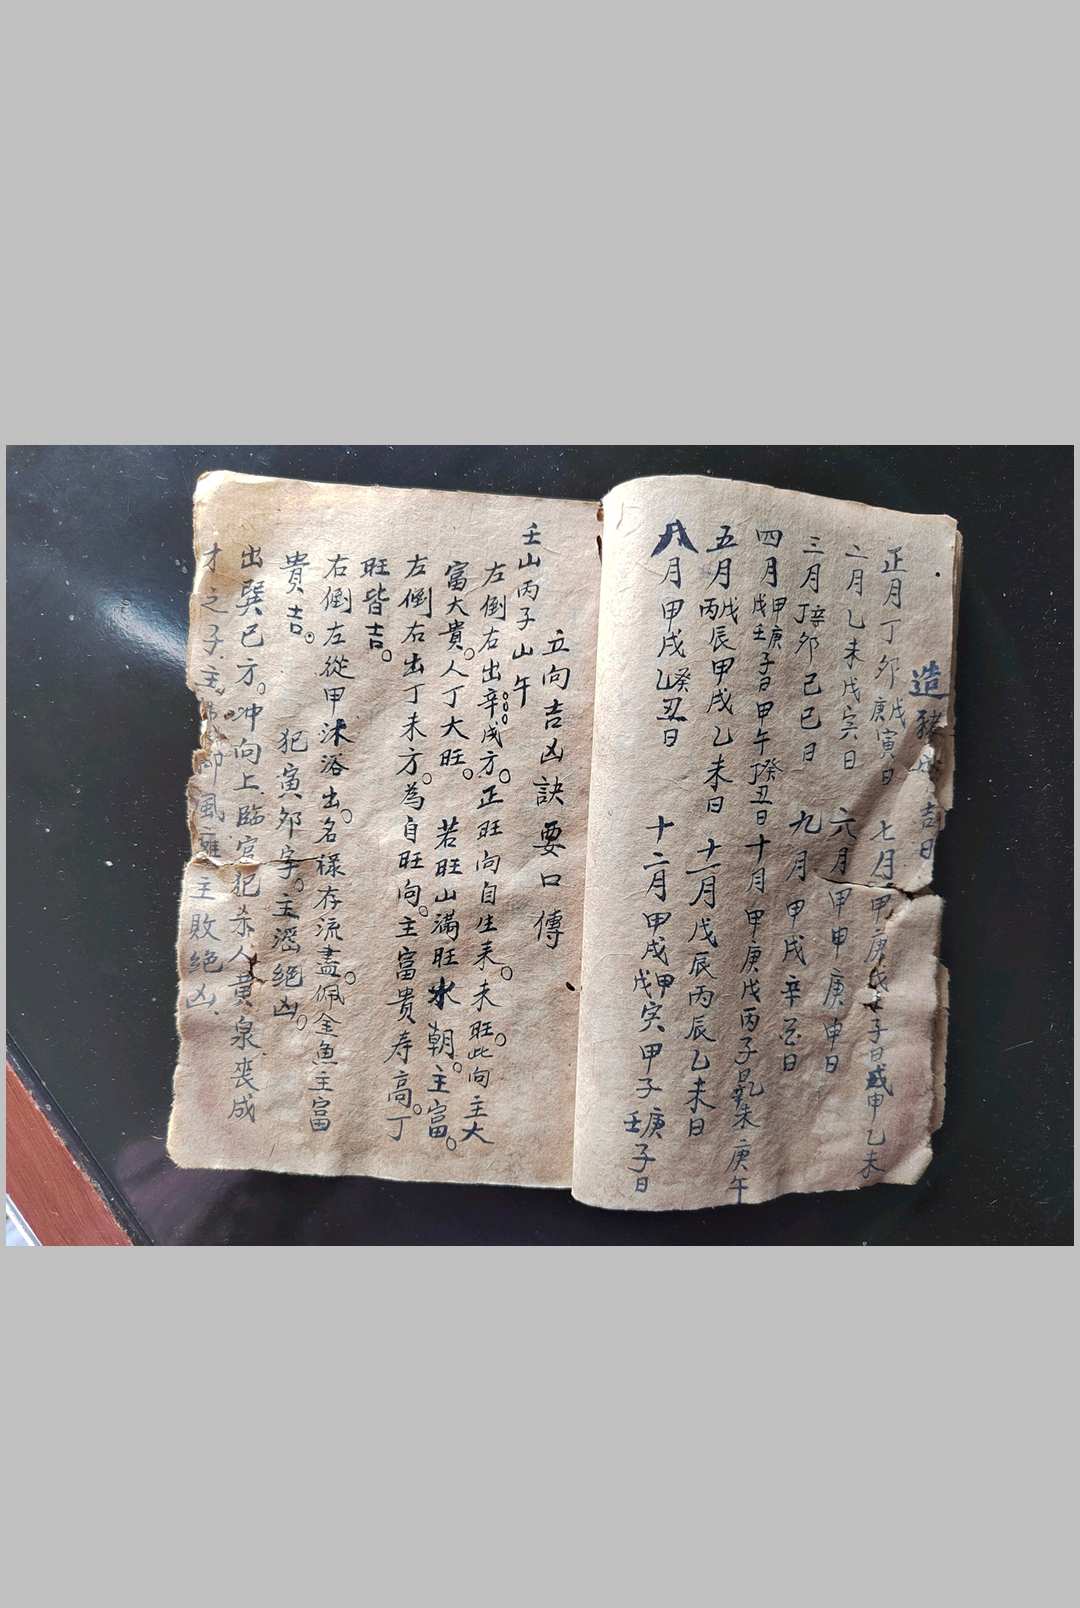 造豬 吉日
正月丁夘庚寅戊日 七月甲庚戊子日 甲乙未
二月乙未戊寅日 六月甲申庚申日
三月丁辛夘己巳日 九月甲戌辛 日
四月甲庚戊壬子日甲午丁癸丑日 十月甲庚戊丙子日乙辛未庚午
五月戊丙辰甲戌乙未日 十一月戊辰丙辰乙未日
八月甲戌乙癸丑日 十二月甲戌戊甲寅甲子庚壬子日
立向吉凶訣要口傳
壬山丙子山午
左倒右出辛戌方。正旺向自生來。來旺此向主大
富大貴。人丁大旺。 若旺山滿旺水朝。主富。
左倒右出丁未方。為自旺向。主富貴寿高。丁
旺皆吉。
右倒左從甲沐浴出。名祿存流盡。佩金魚主富
貴吉。 犯寅夘字。主滛絕凶。
出巽巳方。冲向上臨官犯杀人黄泉丧成
才之子。主 風 主敗絕凶、